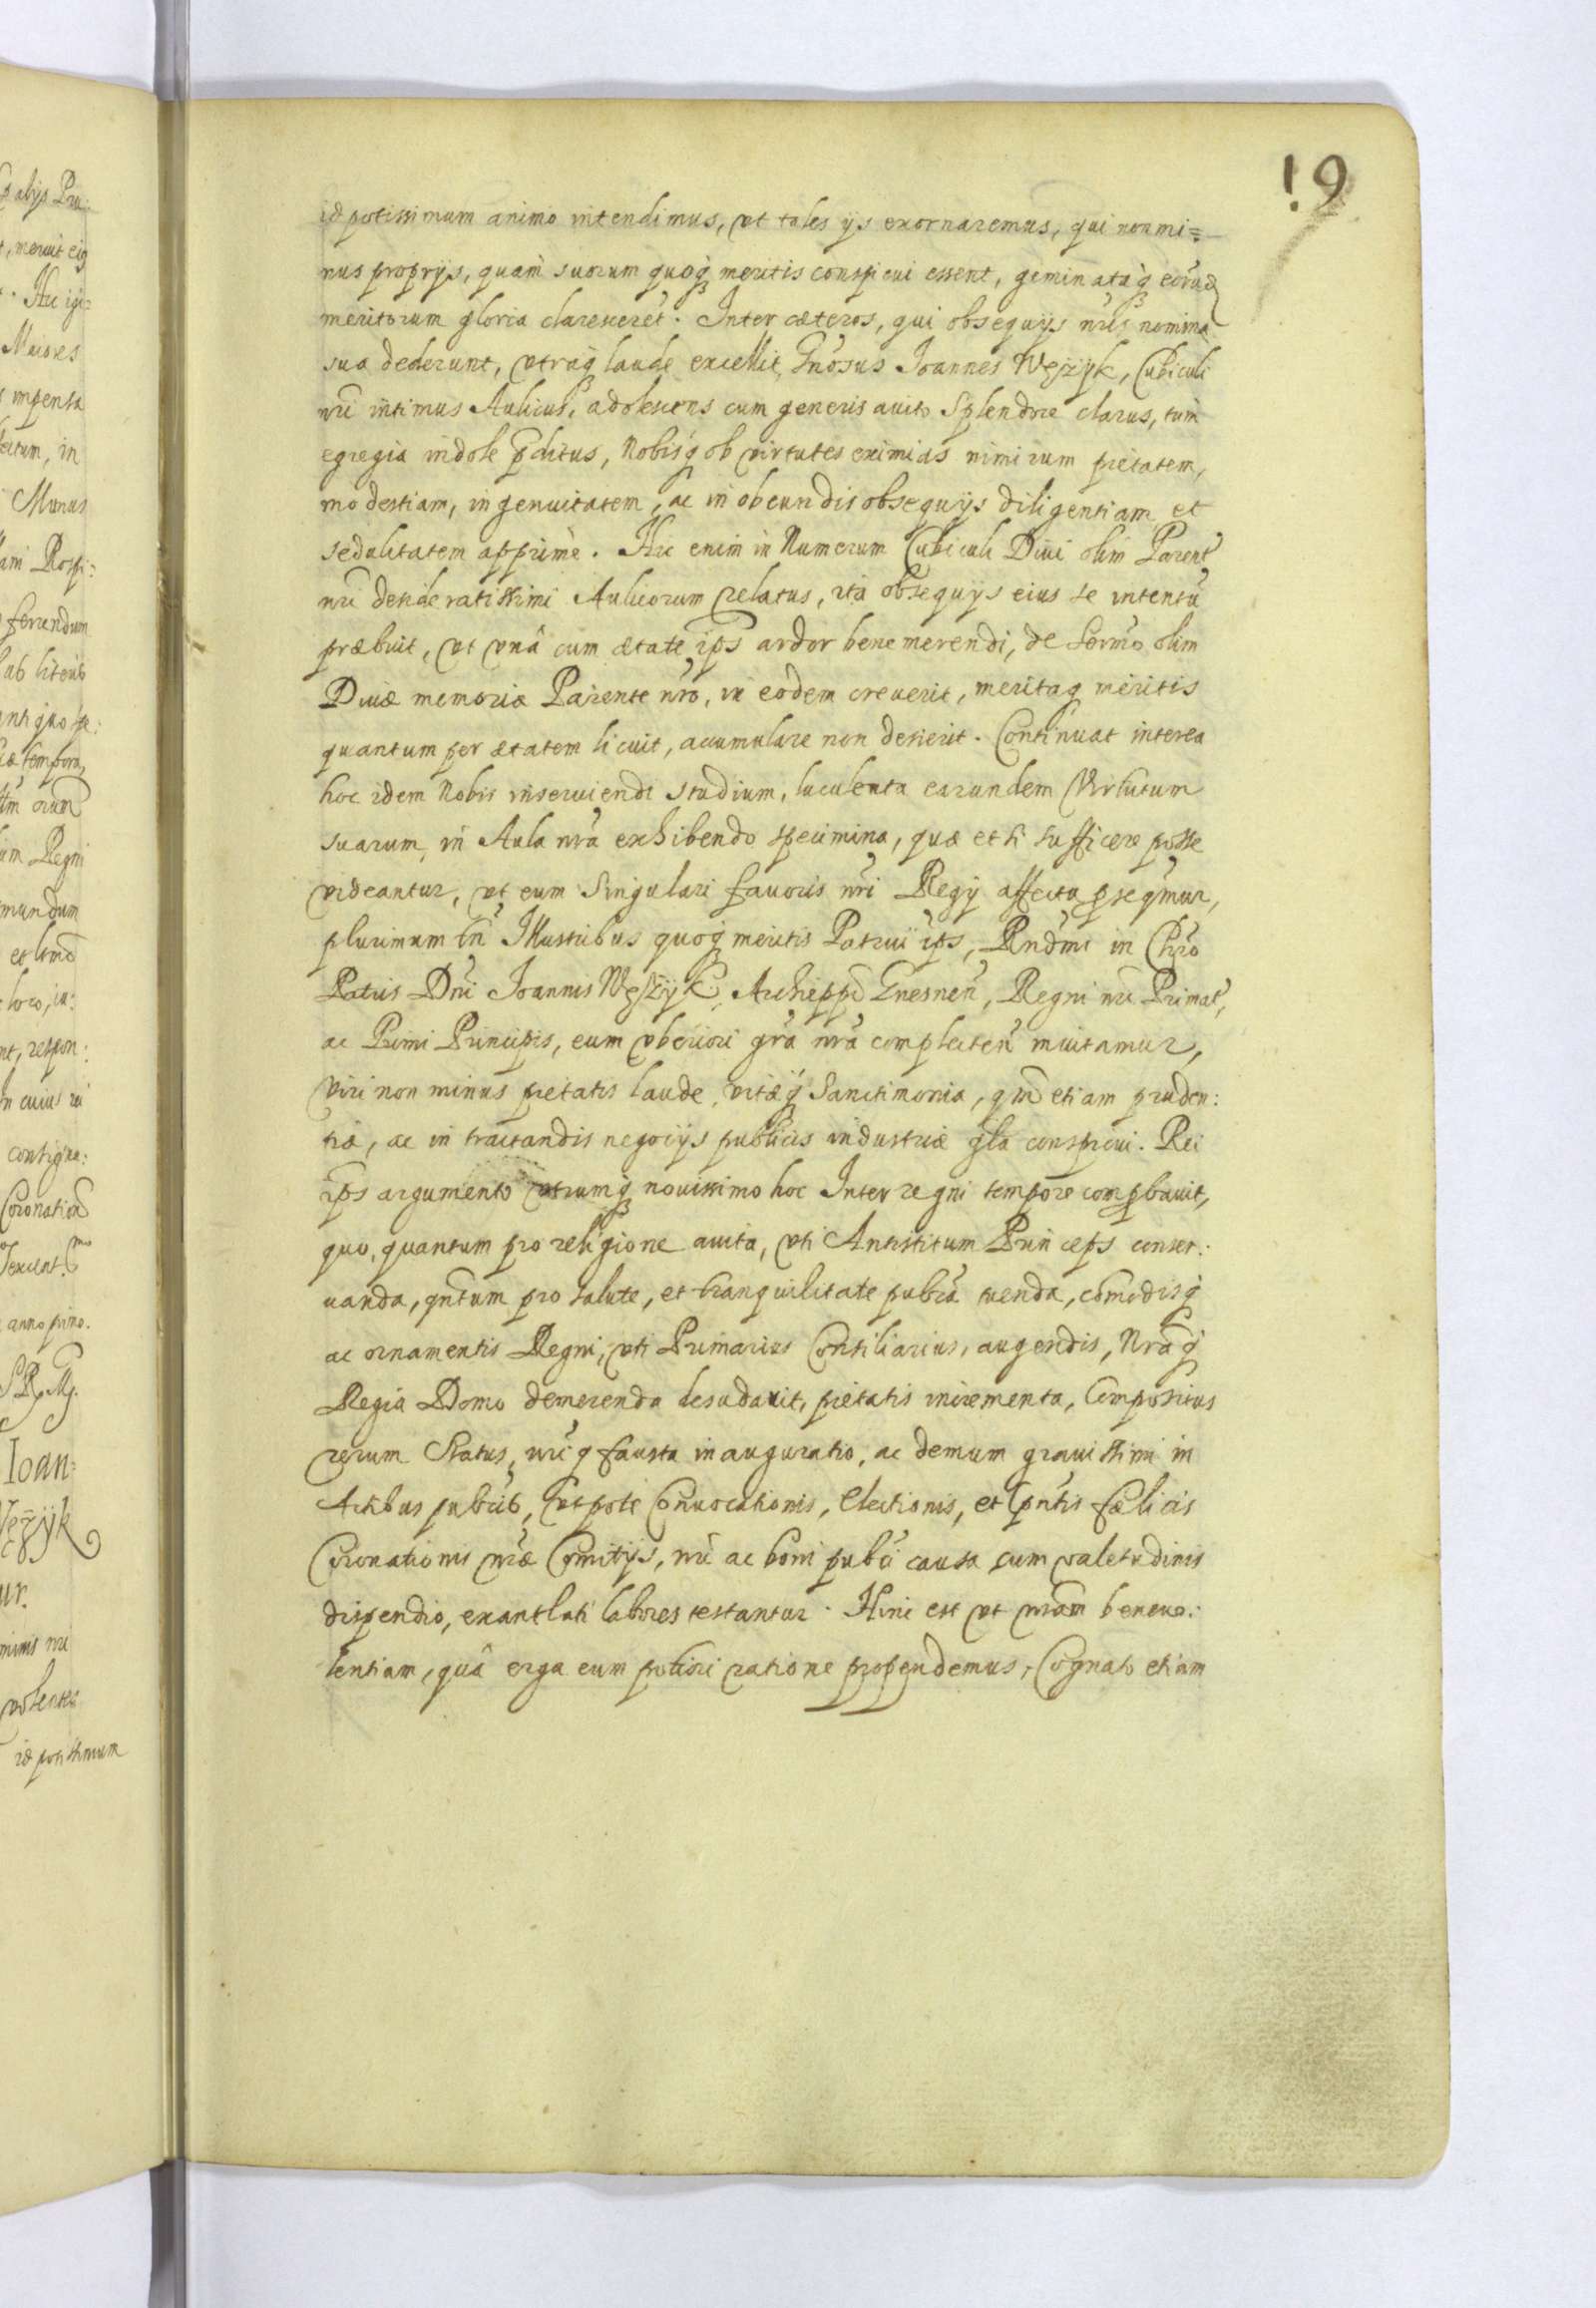 19
id potissimum animo intendimus, vt tales ijs exornaremus, qui non mi=
nus proprijs, quam suorum quoq; meritis conspicui essent, geminataq; eorūd
meritorum gloria claresceret. Inter cæteros, qui obsequijs nr̃is nomina
sua dederunt, vtraq; laude excellit, Gn̄osus Joannes Wężyk, Cubiculi
nr̃i intimus Aulicus, adolescens cum generis auito Splendore clarus, tum
egregia indole p̄ditus, Nobisq; ob virtutes eximias nimirum pietatem,
modestiam, ingenuitatem, ac in obeundis obsequijs diligentiam et
sedulitatem apprimè. Hic enim in Numerum Cubiculi Diui olim Parent̃
nr̃i desideratissimi Aulicorum relatus, ita obsequijs eius se intentū
præbuit, vt vnâ cum ætate ip̃s ardor bene merendi, de Sermo olim
Diuæ memoriæ Parente nr̃o, in eodem creuerit, meritaq; meritis
quantum per ætatem licuit, accumulare non desierit. Continuat interea
hoc idem Nobis inseruiendi studium, luculenta earundem Virtutum
suarum, in Aula nr̃a exhibendo specimina, quæ etsi sufficere posse
videantur, vt eum Singulari fauoris nr̃i Regij affectu ꝓseq̃mur,
plurimum tñ Illustribus quoq; meritis Patrui ip̃s, Rndmi in Chr̃o
Patris Dñi Joannis Wężyk, Archieppi Gnesneñ, Regni nr̃i Primat̃,
ac Primi Principis, eum vberiori gr̃a nr̃a complecteñ inuitamur,
Viri non minus pietatis laude, vitæq; Sanctimonia, qm̃ etiam pruden:
tiæ, ac in tractandis negocijs publicis industriæ gl̃a conspicui. Rei
ip̃s argumento vtrumq; nouissimo hoc Inter regni tempore comꝓbauit,
quo, quantum pro religione auita, vti Antistitum Princeps conser:
uanda, qñtum pro salute, et tranquilitate publ̃ca tuenda, cōmodisq;
ac ornamentis Regni, vti Primarius Consiliarius, augendis, Nr̃aq;
Regia Domo demerenda desudauit, pietatis incrementa, Compositus
rerum Status, nr̃iq; fausta inauguratio, ac demum grauissimi in
Actibus publ̃cis, vtpote Conuocationis, Electionis, et p̃ntis fælicis
Coronationis nr̃æ Comitijs, nr̃i ac boni publ̃ci causa cum valetudinis
dispendio, exantlati labores testantur. Hinc est vt nr̃am beneuo:
lentiam, quâ erga eum potiori ratione propendemus, Cognato etiam